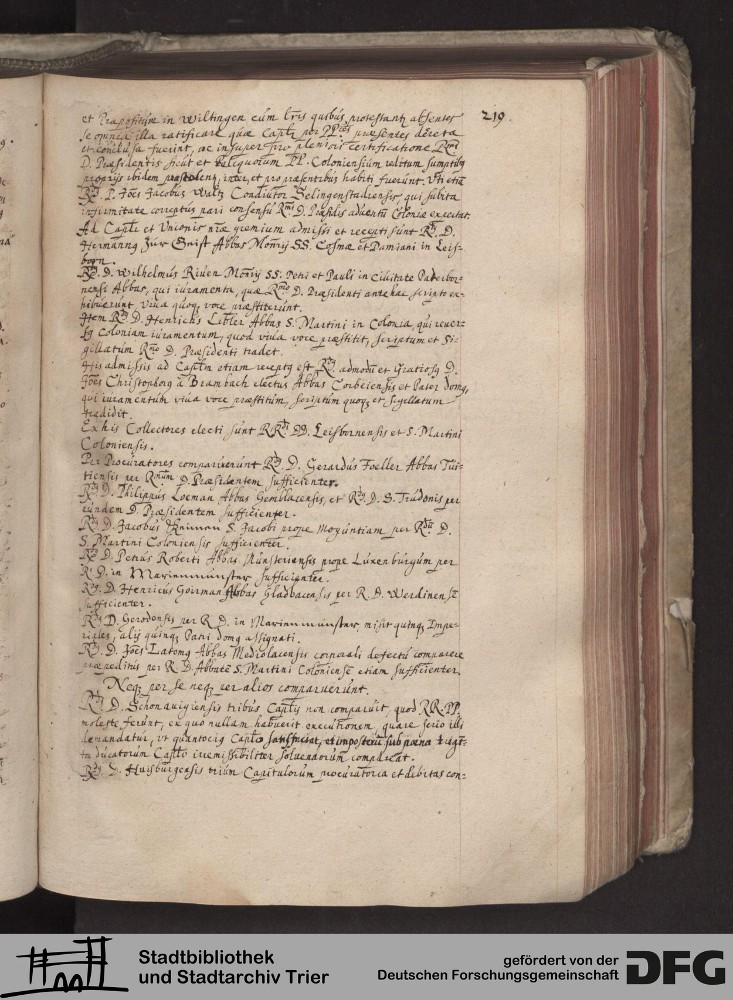 219.
et Praepositum in Wiltingen cum lris quibus protestantz absentes
se omnia illa ratificare quae Captm per PP. praesentes decreta
et conclusa fuerint, ac insuper pro pleniori certificatione Rmi
D. Praesidentis sicut et reliquorum PP. Coloniensium reditum sumptibus
proprijs ibidem praestolentz, inter et pro praesentibus habiti fuerunt. Vti etiã
Rdus P. Joes Jacobus Waltz Condiutor Selingenstadiensis, qui subita
infirmitate correptus pari consensu Rmi D. Praesidis aduentũ Coloniae expectat.
Ad Captli et Vnionis nrae gremium admissi et recepti sunt Rdg. D.
Hermanng Zur Gaist Abbas Monrij SS. Cosmae et Damiani in Leis=
born.
Rdg. D. Wilhelmus Riuen Monrij SS. Petri et Pauli in Ciuitate Paderbor=
nensi Abbas, qui iuramenta, quae Rmo D. Praesidenti antehac scripto ex=
hibuerunt, viua quoq voce praestiterunt.
Item Rdg D. Henricus Libler Abbas S. Martini in Colonia, qui reuer=
sg Coloniam iuramentum, quod viua voce praestitit, scriptum et Si=
gillatum Rmo D. Praesidenti tradet.
His admissis ad Captlm etiam receptg est Rdg admodũ et Gratiosg D.
Joes Christophorg à Brambach electus Abbas Corbeiensis et Pater domg,
qui iuramentum viua voce praestitum, scriptum quoq et sigellatum
tradidit.
Ex his Collectores electi sunt RRdi DD. Leisbornensis et S. Martini
Coloniensis.
Per Procuratores comparuerunt Rdg. D. Gerardus Foeller Abbas Tui=
tiensis per Rmum D. Praesidentem sufficienter.
Rdg D. Philippus Loeman Abbas Gemblacensis, et Rdg. D. S. Trudonis per
eundem D. Praesidentem sufficienter.
Rdg D. Jacobus S. Jacobi prope Moguntiam per Rdu D.
S. Martini Coloniensis sufficienter.
Rdg D. Petrus Roberti Abbas Münsteriensis prope Luxenburgum per
R. D. in Marienmünster sufficienter.
Rdg. D. Henricus Abbas Gladbacensis per R. D. Werdinensẽ
sufficienter.
Rdg D. Gerodensis per R D. in Marienmünster, misit quinq Impe=
riales, alij quinq Patri domg assignati.
Rdg. D. Joes Latomg Abbas Mediolacensis corporali defectu comparere
praepeditus per R D. Abbatẽ S. Martini Coloniensẽ etiam sufficienter.
Neq per se neq per alios comparuerunt.
Rdg D. Schonauigiensis tribus Captlis non comparuit, quod RR.PP.
moleste ferunt, ex quo nullam habuerit executionem, quare serio illi
demandatur, vt quantocig Captlo satisfaciat, et imposterũ sub poena
ta ducatorum Captlo irremissibiliter soluendorum compareat.
Rdg. D. Huisburgensis trium Capitulorum procuratoria et debitas con=
Stadtbibliothek
und Stadtarchiv Trier
gefördert von der
Deutschen Forschungsgemeinschaft
DFG